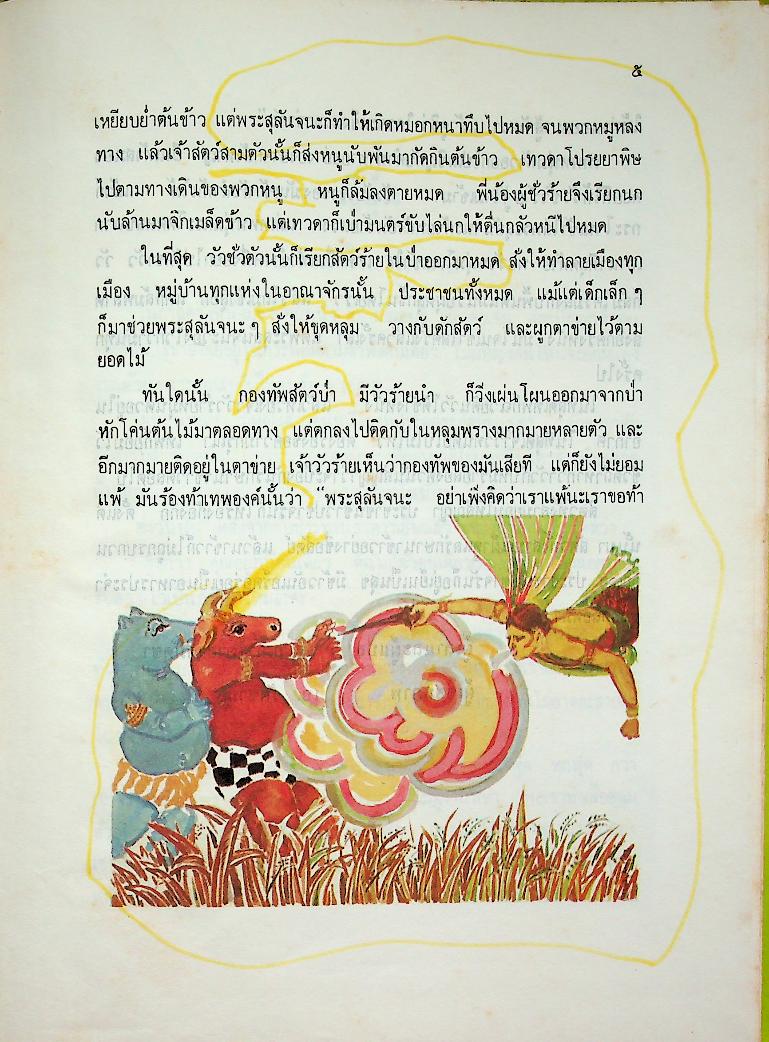 ๕
เหยียบย่ำต้นข้าว แต่พระสุลันจนะก็ทำให้เกิดหมอกหนาทึบไปหมด จนพวกหมูหลง
ทาง แล้วเจ้าสัตว์สามตัวนั้นก็ส่งหนูนับพันมากัดกินต้นข้าว เทวดาโปรยยาพิษ
ไปตามทางเดินของพวกหนู หนูก็ล้มลงตายหมด พี่น้องผู้ชั่วร้ายจึงเรียกนก
นับล้านมาจิกเมล็ดข้าว แต่เทวดาก็เป่ามนตร์ขับไล่นกให้ตื่นกลัวหนีไปหมด
ในที่สุด วัวชั่วตัวนั้นก็เรียกสัตว์ร้ายในป่าออกมาหมด สั่งให้ทำลายเมืองทุก
เมือง หมู่บ้านทุกแห่งในอาณาจักรนั้น ประชาชนทั้งหมด แม้แต่เด็กเล็ก ๆ
ก็มาช่วยพระสุลันจนะ ๆ สั่งให้ขุดหลุม วางกับดักสัตว์ และผูกตาข่ายไว้ตาม
ยอดไม้
ทันใดนั้น กองทัพสัตว์ป่า มีวัวร้ายนำ ก็วิ่งเผ่นโผนออกมาจากป่า
หักโค่นต้นไม้มาตลอดทาง แต่ตกลงไปติดกับในหลุมพรางมากมายหลายตัว และ
อีกมากมายติดอยู่ในตาข่าย เจ้าวัวร้ายเห็นว่ากองทัพของมันเสียที แต่ก็ยังไม่ยอม
แพ้ มันร้องท้าเทพองค์นั้นว่า "พระสุลันจนะ อย่าเพิ่งคิดว่าเราแพ้นะเราขอท้า